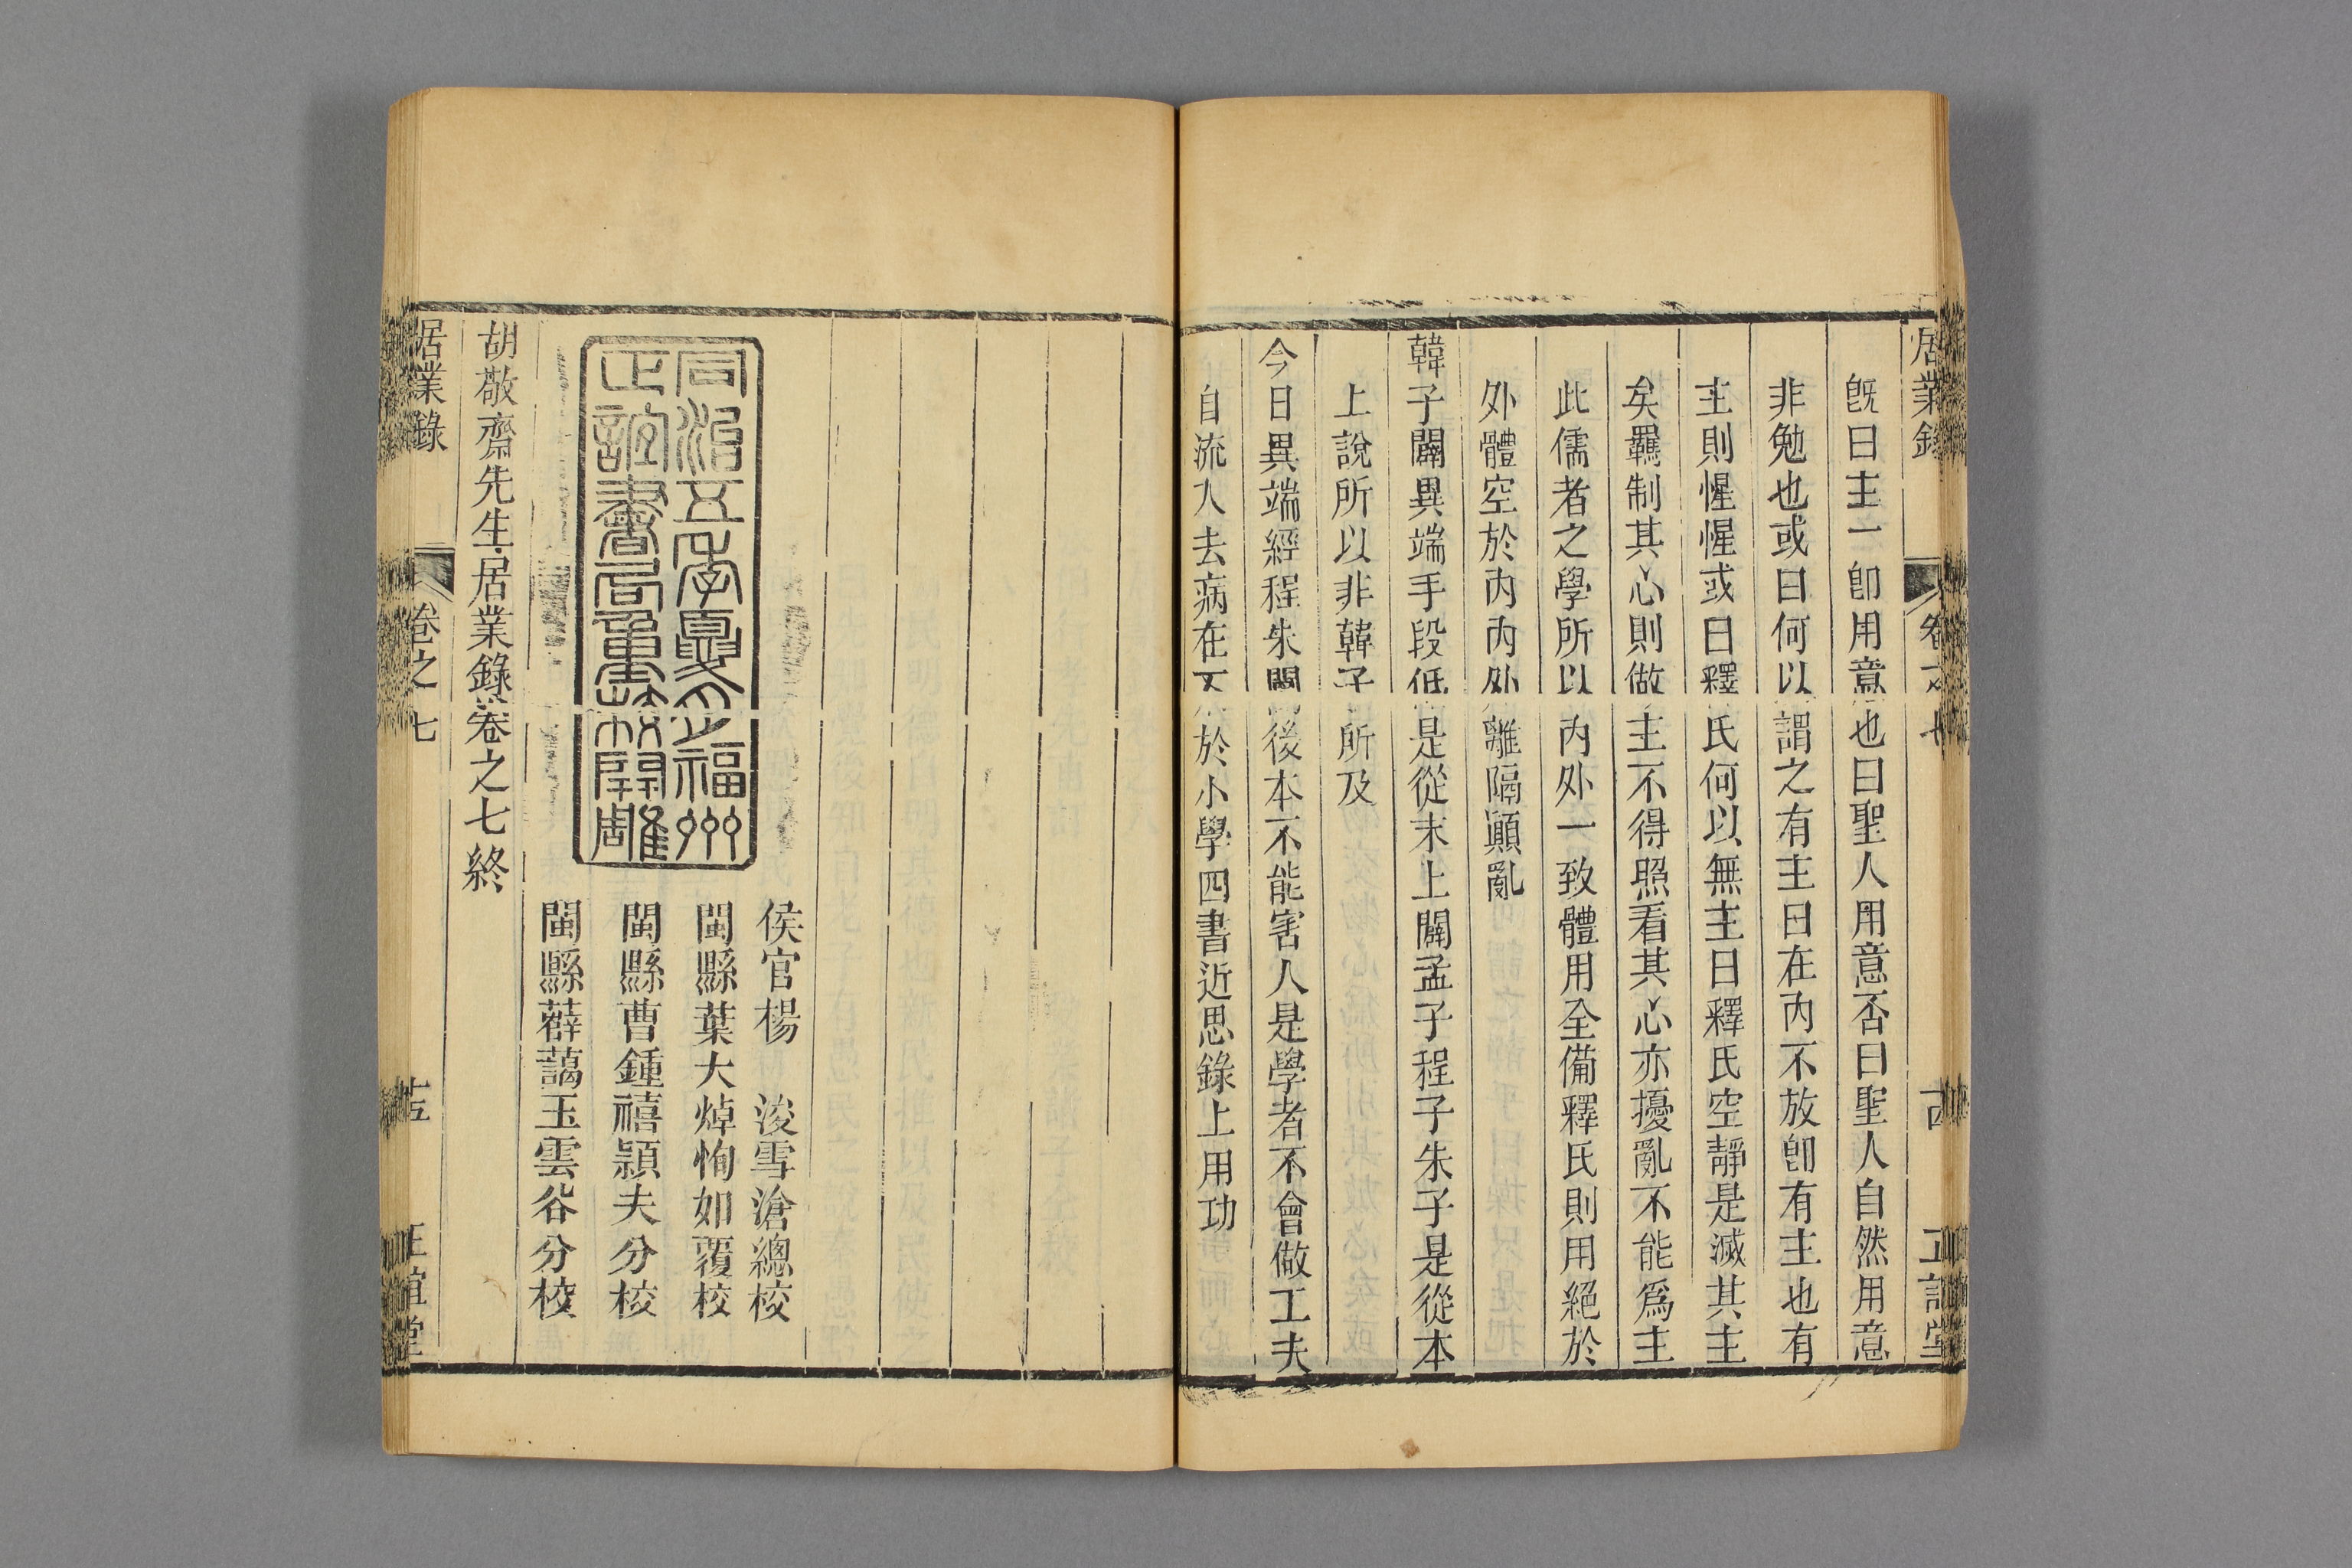 居業錄 卷之七
既曰主一卽用意也曰聖人用意否曰聖人自然用意
非勉也或曰何以謂之有主曰在內不放卽有主也有
主則惺惺或曰釋氏何以無主曰釋氏空靜是滅其主
矣羈制其心則做主不得照看其心亦擾亂不能爲主
此儒者之學所以內外一致體用全備釋氏則用絕於
外體空於內內外離隔顚亂
韓子闢異端手段低是從末上闢孟子程子朱子是從本
上說所以非韓子所及
今日異端經程朱闢後本不能害人是學者不會做工夫
自流入去病在不於小學四書近思錄上用功
侯官楊 浚雪滄總校
閩縣葉大焯恂如覆校
閩縣曹鍾禧穎夫分校
閩縣薛藹玉雲谷分校
同治五年夏月福州
正誼書局重校開雕
胡敬齋先生居業錄卷之七終
居業錄 卷之七 正誼堂